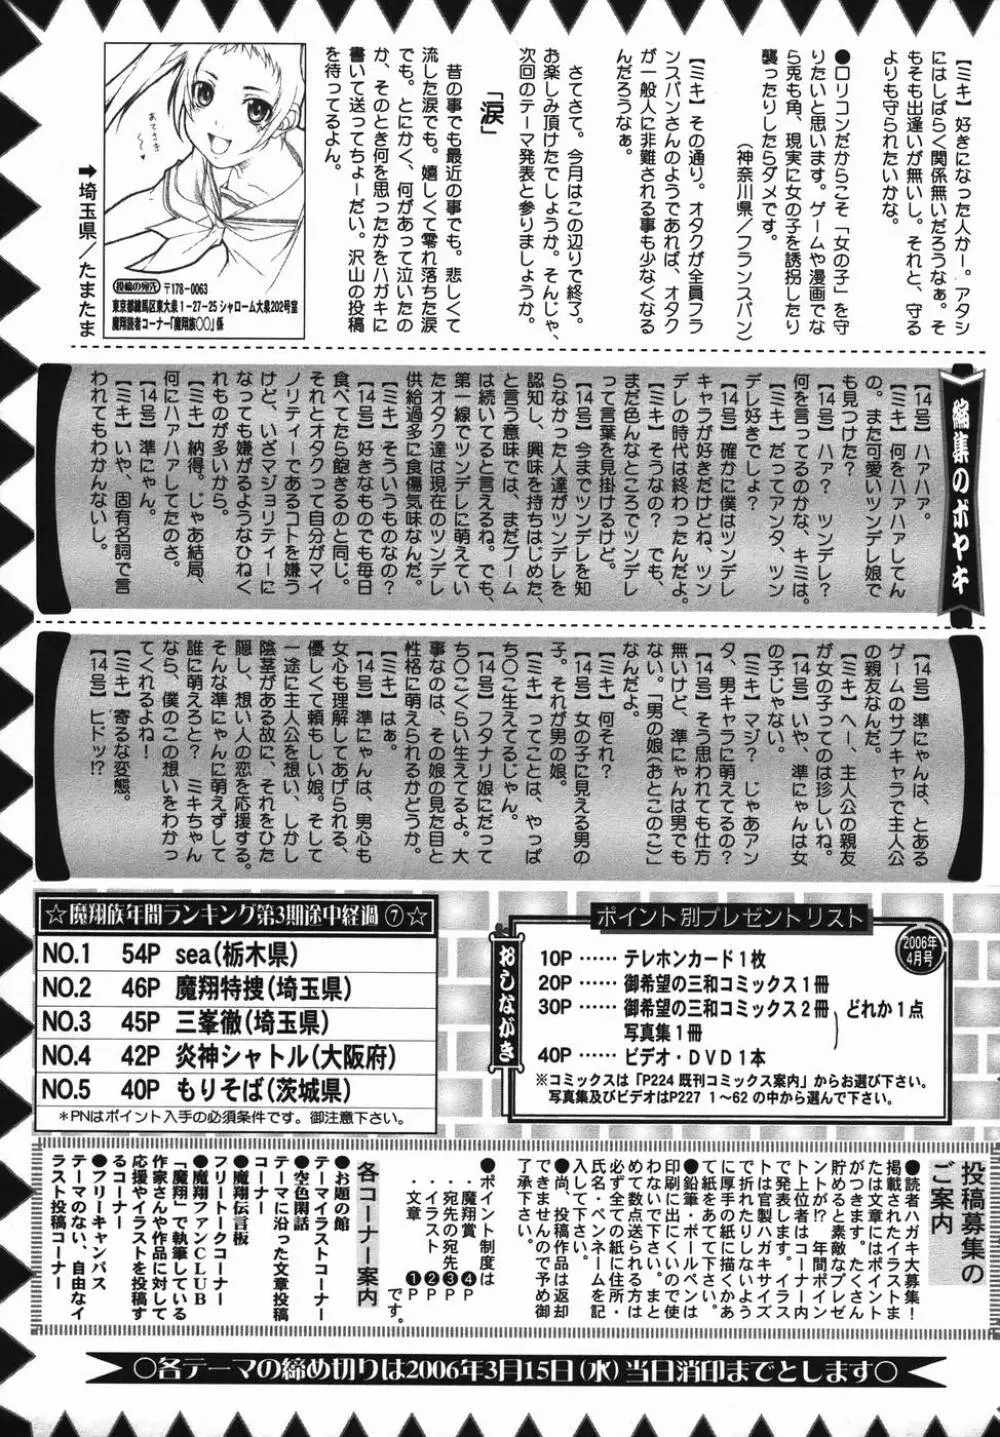 【ミキ】好きになった人かー。アタシ
にはしばらく関係無いだろうなぁ。そ
もそも出逢いが無いし。それと、守る
よりも守られたいかな。
●ロリコンだからこそ「女の子」を守
りたいと思います。ゲームや漫画でな
ら兎も角、現実に女の子を誘拐したり
襲ったりしたらダメです。
（神奈川県／フランスパン）
【ミキ】その通り。オタクが全員フラ
ンスパンさんのようであれば、オタク
が一般人に非難される事も少なくなる
んだろうなぁ。
さてさて。今月はこの辺りで終了。
お楽しみ頂けたでしょうか。そんじゃ、
次回のテーマ発表と参りましょうか。
「涙」
昔の事でも最近の事でも。悲しくて
流した涙でも。嬉しくて零れ落ちた涙
でも。とにかく、何があって泣いたの
か、そのとき何を思ったかをハガキに
書いて送ってちょーだい。沢山の投稿
を待ってるよん。
あてさき
➡埼玉県／たまたま
投稿の宛先 〒178-0063
東京都練馬区東大泉1-27-25 シャローム大泉202号室
魔翔読者コーナー「魔翔族〇〇」係
編集のボヤキ
【14号】ハァハァ。
【ミキ】何をハァハァしてん
の。また可愛いツンデレ娘で
も見つけた？
【14号】ハァ？　ツンデレ？
何を言ってるのかな、キミは。
【ミキ】だってアンタ、ツン
デレ好きでしょ？
【14号】確かに僕はツンデレ
キャラが好きだけどね、ツン
デレの時代は終わったんだよ。
【ミキ】そうなの？　でも、
まだ色んなところでツンデレ
って言葉を見掛けるけど。
【14号】今までツンデレを知
らなかった人達がツンデレを
認知し、興味を持ちはじめた、
と言う意味では、まだブーム
は続いてると言えるね。でも、
第一線でツンデレに萌えてい
たオタク達は現在のツンデレ
供給過多に食傷気味なんだ。
【ミキ】そういうものなの？
【14号】好きなものでも毎日
食べてたら飽きるのと同じ。
それとオタクって自分がマイ
ノリティーであるコトを嫌う
けど、いざマジョリティーに
なっても嫌がるようなひねく
れものが多いから。
【ミキ】納得。じゃあ結局、
何にハァハァしてたのさ。
【14号】準にゃん。
【ミキ】いや、固有名詞で言
われてもわかんないし。
【14号】準にゃんは、とある
ゲームのサブキャラで主人公
の親友なんだ。
【ミキ】へー、主人公の親友
が女の子ってのは珍しいね。
【14号】いや、準にゃんは女
の子じゃない。
【ミキ】マジ？　じゃあアン
タ、男キャラに萌えてるの？
【14号】そう思われても仕方
無いけど、準にゃんは男でも
ない。「男の娘（おとこのこ）」
なんだよ。
【ミキ】何それ？
【14号】女の子に見える男の
子。それが男の娘。
【ミキ】ってことは、やっぱ
ち〇こ生えてるじゃん。
【14号】フタナリ娘にだって
ち〇こくらい生えてるよ。大
事なのは、その娘の見た目と
性格に萌えられるかどうか。
【ミキ】はぁ。
【14号】準にゃんは、男心も
女心も理解してあげられる、
優しくて頼もしい娘。そして
一途に主人公を想い、しかし
陰茎がある故に、それをひた
隠し、想い人の恋を応援する。
そんな準にゃんに萌えずして
誰に萌えろと？　ミキちゃん
なら、僕のこの想いをわかっ
てくれるよね！
【ミキ】寄るな変態。
【14号】ヒドッ!?
☆魔翔族年間ランキング第3期途中経過⑦☆
NO.1　54P　sea(栃木県)
NO.2　46P　魔翔特捜(埼玉県)
NO.3　45P　三峯徹(埼玉県)
NO.4　42P　炎神シャトル(大阪府)
NO.5　40P　もりそば(茨城県)
＊PNはポイント入手の必須条件です。御注意下さい。
ポイント別プレゼントリスト
2006年4月号
おしながき
10P……テレホンカード1枚
20P……御希望の三和コミックス1冊
30P……御希望の三和コミックス2冊
写真集1冊
どれか1点
40P……ビデオ・DVD1本
※コミックスは「P224 既刊コミックス案内」からお選び下さい。
写真集及びビデオはP227 1～62の中から選んで下さい。
投稿募集の
ご案内
●読者ハガキ大募集！
掲載されたイラストま
たは文章にはポイント
がつきます。たくさん
貯めると素敵なプレゼ
ントが!?　年間ポイン
ト上位者はコーナー内
で発表します。イラス
トは官製ハガキサイズ
で折れたりしないよう
に厚手の紙に描かあ
て紙をあてて下さい。
●鉛筆・ボールペンは
印刷に出にくいので使
わないで下さい。まと
めて数点送られる方は
必ず全ての紙に住所・
氏名・ペンネームを記
入して下さい。
●尚、投稿作品は返却
できませんので予め御
了承下さい。
●ポイント制度は
・魔翔賞　❹P
・宛先の宛先❸P
・イラスト　❷P
・文章　❶P
です。
各コーナー案内
●お題の館
テーマイラストコーナー
●空色閑話
テーマに沿った文章投稿
コーナー
●魔翔伝言板
フリートークコーナー
●魔翔ファンCLUB
「魔翔」で執筆している
作家さんや作品に対して
応援やイラストを投稿す
るコーナー
●フリーキャンバス
テーマのない、自由なイ
ラスト投稿コーナー
○各テーマの締め切りは2006年3月15日(水)当日消印までとします○